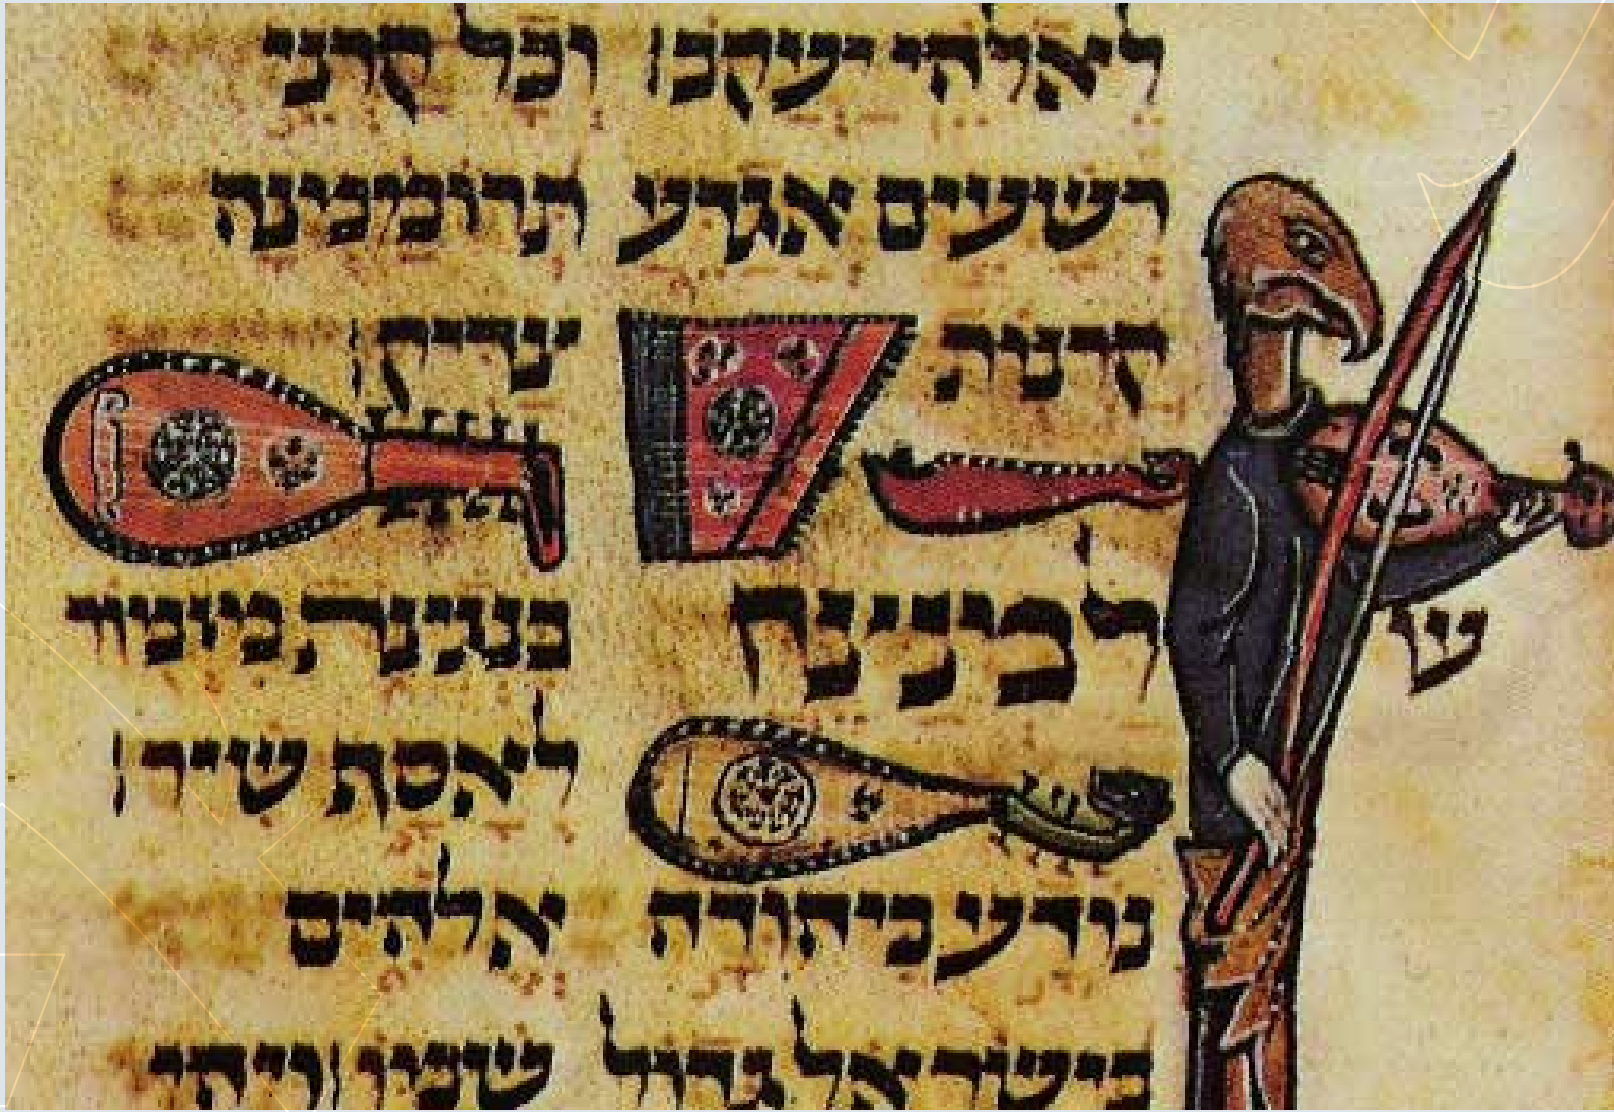 לאלהי יעקב וכל קרני
רשעים אגדע תרוממנה
קרנות צדיק
עו למנצח בנגינת מזמור
לאסף שיר
נודע ביהודה אלהים
בישראל גדול שמו ויהי